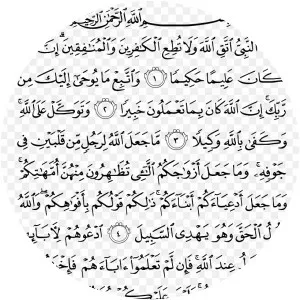 بِسْمِ اللَّهِ الرَّحْمَٰنِ الرَّحِيمِ
النَّبِيُّ اتَّقِ اللَّهَ وَلَا تُطِعِ الْكَافِرِينَ وَالْمُنَافِقِينَ إِنَّ
كَانَ عَلِيمًا حَكِيمًا ١ وَاتَّبِعْ مَا يُوحَىٰ إِلَيْكَ مِن
رَّبِّكَ إِنَّ اللَّهَ كَانَ بِمَا تَعْمَلُونَ خَبِيرًا ٢ وَتَوَكَّلْ عَلَى اللَّهِ
وَكَفَىٰ بِاللَّهِ وَكِيلًا ٣ مَّا جَعَلَ اللَّهُ لِرَجُلٍ مِّن قَلْبَيْنِ فِي
جَوْفِهِ وَمَا جَعَلَ أَزْوَاجَكُمُ اللَّائِي تُظَاهِرُونَ مِنْهُنَّ أُمَّهَاتِكُمْ
وَمَا جَعَلَ أَدْعِيَاءَكُمْ أَبْنَاءَكُمْ ذَٰلِكُمْ قَوْلُكُم بِأَفْوَاهِكُمْ وَاللَّهُ
الْحَقَّ وَهُوَ يَهْدِي السَّبِيلَ ٤ ادْعُوهُمْ لِآبَائِ
عِندَ اللَّهِ فَإِن لَّمْ تَعْلَمُوا آبَاءَهُمْ فَإِخْوَ